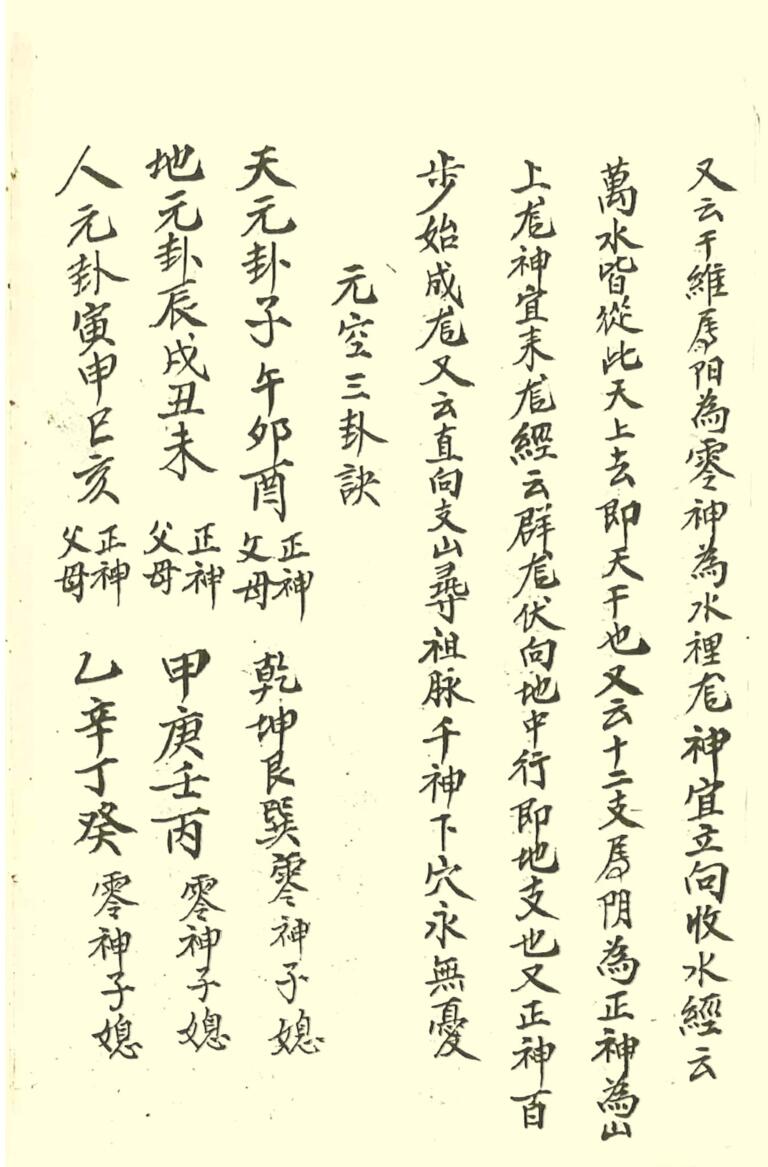 又云干維屬阳為零神為水裡龙神宜立向收水經云
萬水皆從此天上去即天干也又云十二支屬阴為正神為山
上龙神宜来龙經云群龙伏向地中行即地支也又正神百
步始成龙又云直向支山尋祖脉干神下穴永無憂
元空三卦訣
天元卦子午卯酉 正神父母 乾坤艮巽零神子媳
地元卦辰戌丑未 正神父母 甲庚壬丙 零神子媳
人元卦寅申巳亥 正神父母 乙辛丁癸 零神子媳